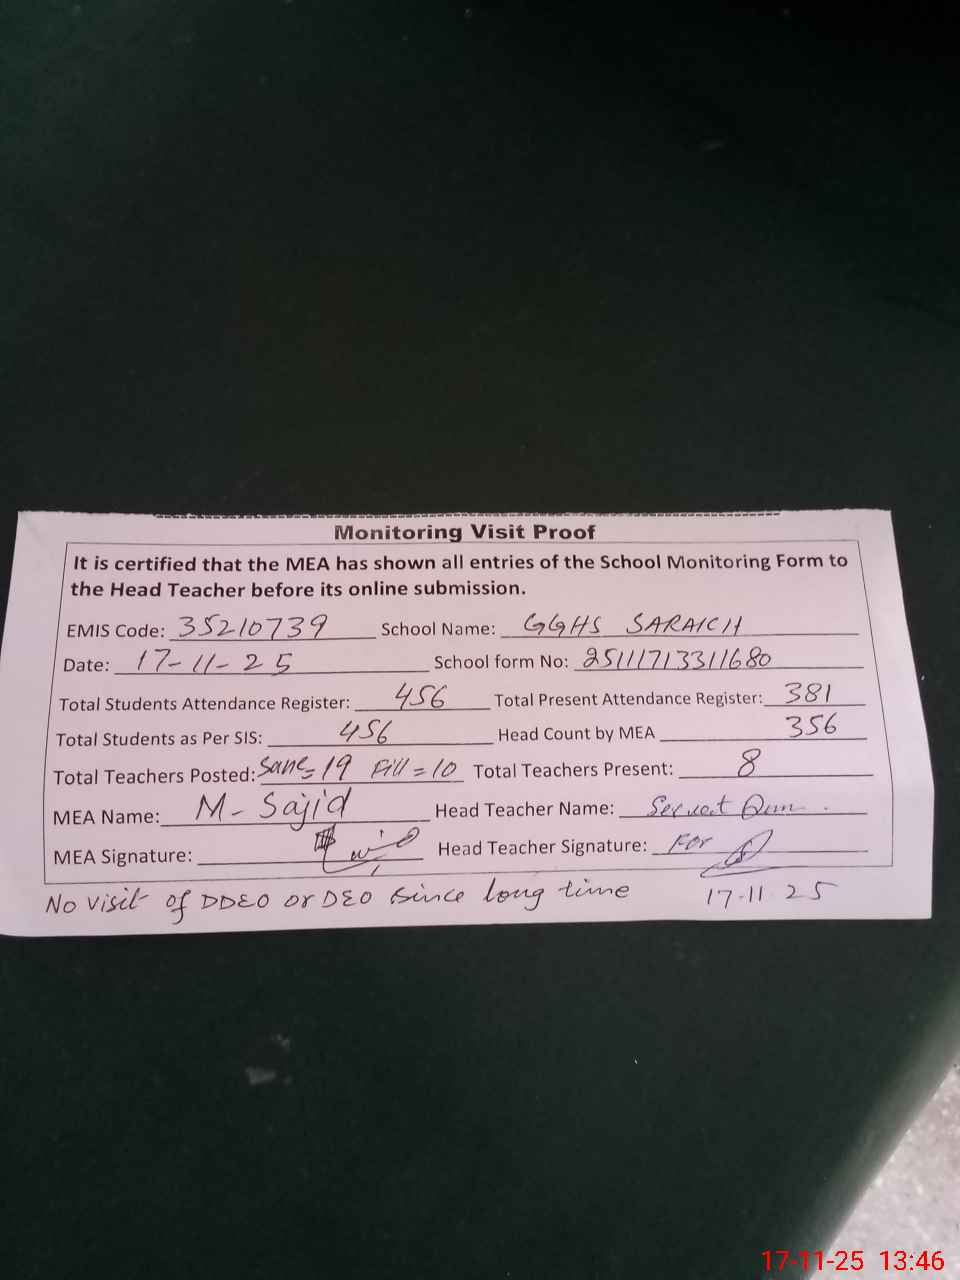 Monitoring Visit Proof
It is certified that the MEA has shown all entries of the School Monitoring Form to
the Head Teacher before its online submission.
EMIS Code: 35210739 School Name: GGHS SARAICH
Date: 17-11-25 School form No: 25111713311680
Total Students Attendance Register: 456 Total Present Attendance Register: 381
Total Students as Per SIS: 456 Head Count by MEA 356
Total Teachers Posted: Sanc=19 Fill=10 Total Teachers Present: 8
MEA Name: M-Sajid Head Teacher Name:
MEA Signature: Head Teacher Signature: For
17-11-25
No visit of DDEO or DEO since long time
17-11-25 13:46